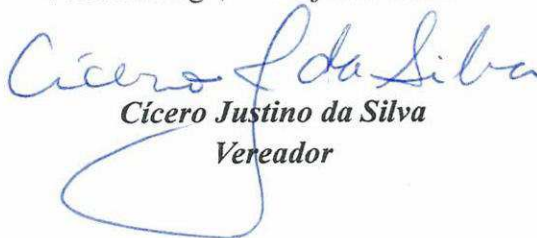 Cícero J da Silva
Cícero Justino da Silva
Vereador